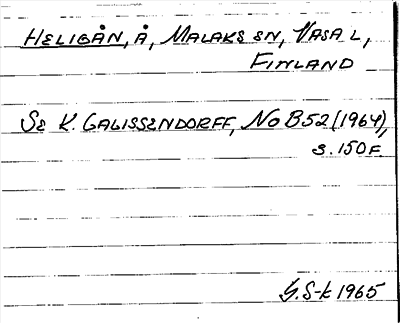 HELIGÅN, Å, MALAKS SN, VASA L,
FINLAND
SE K. GALISSENDORFF, No B52 (1964),
s. 150 F.
G. S-k 1965